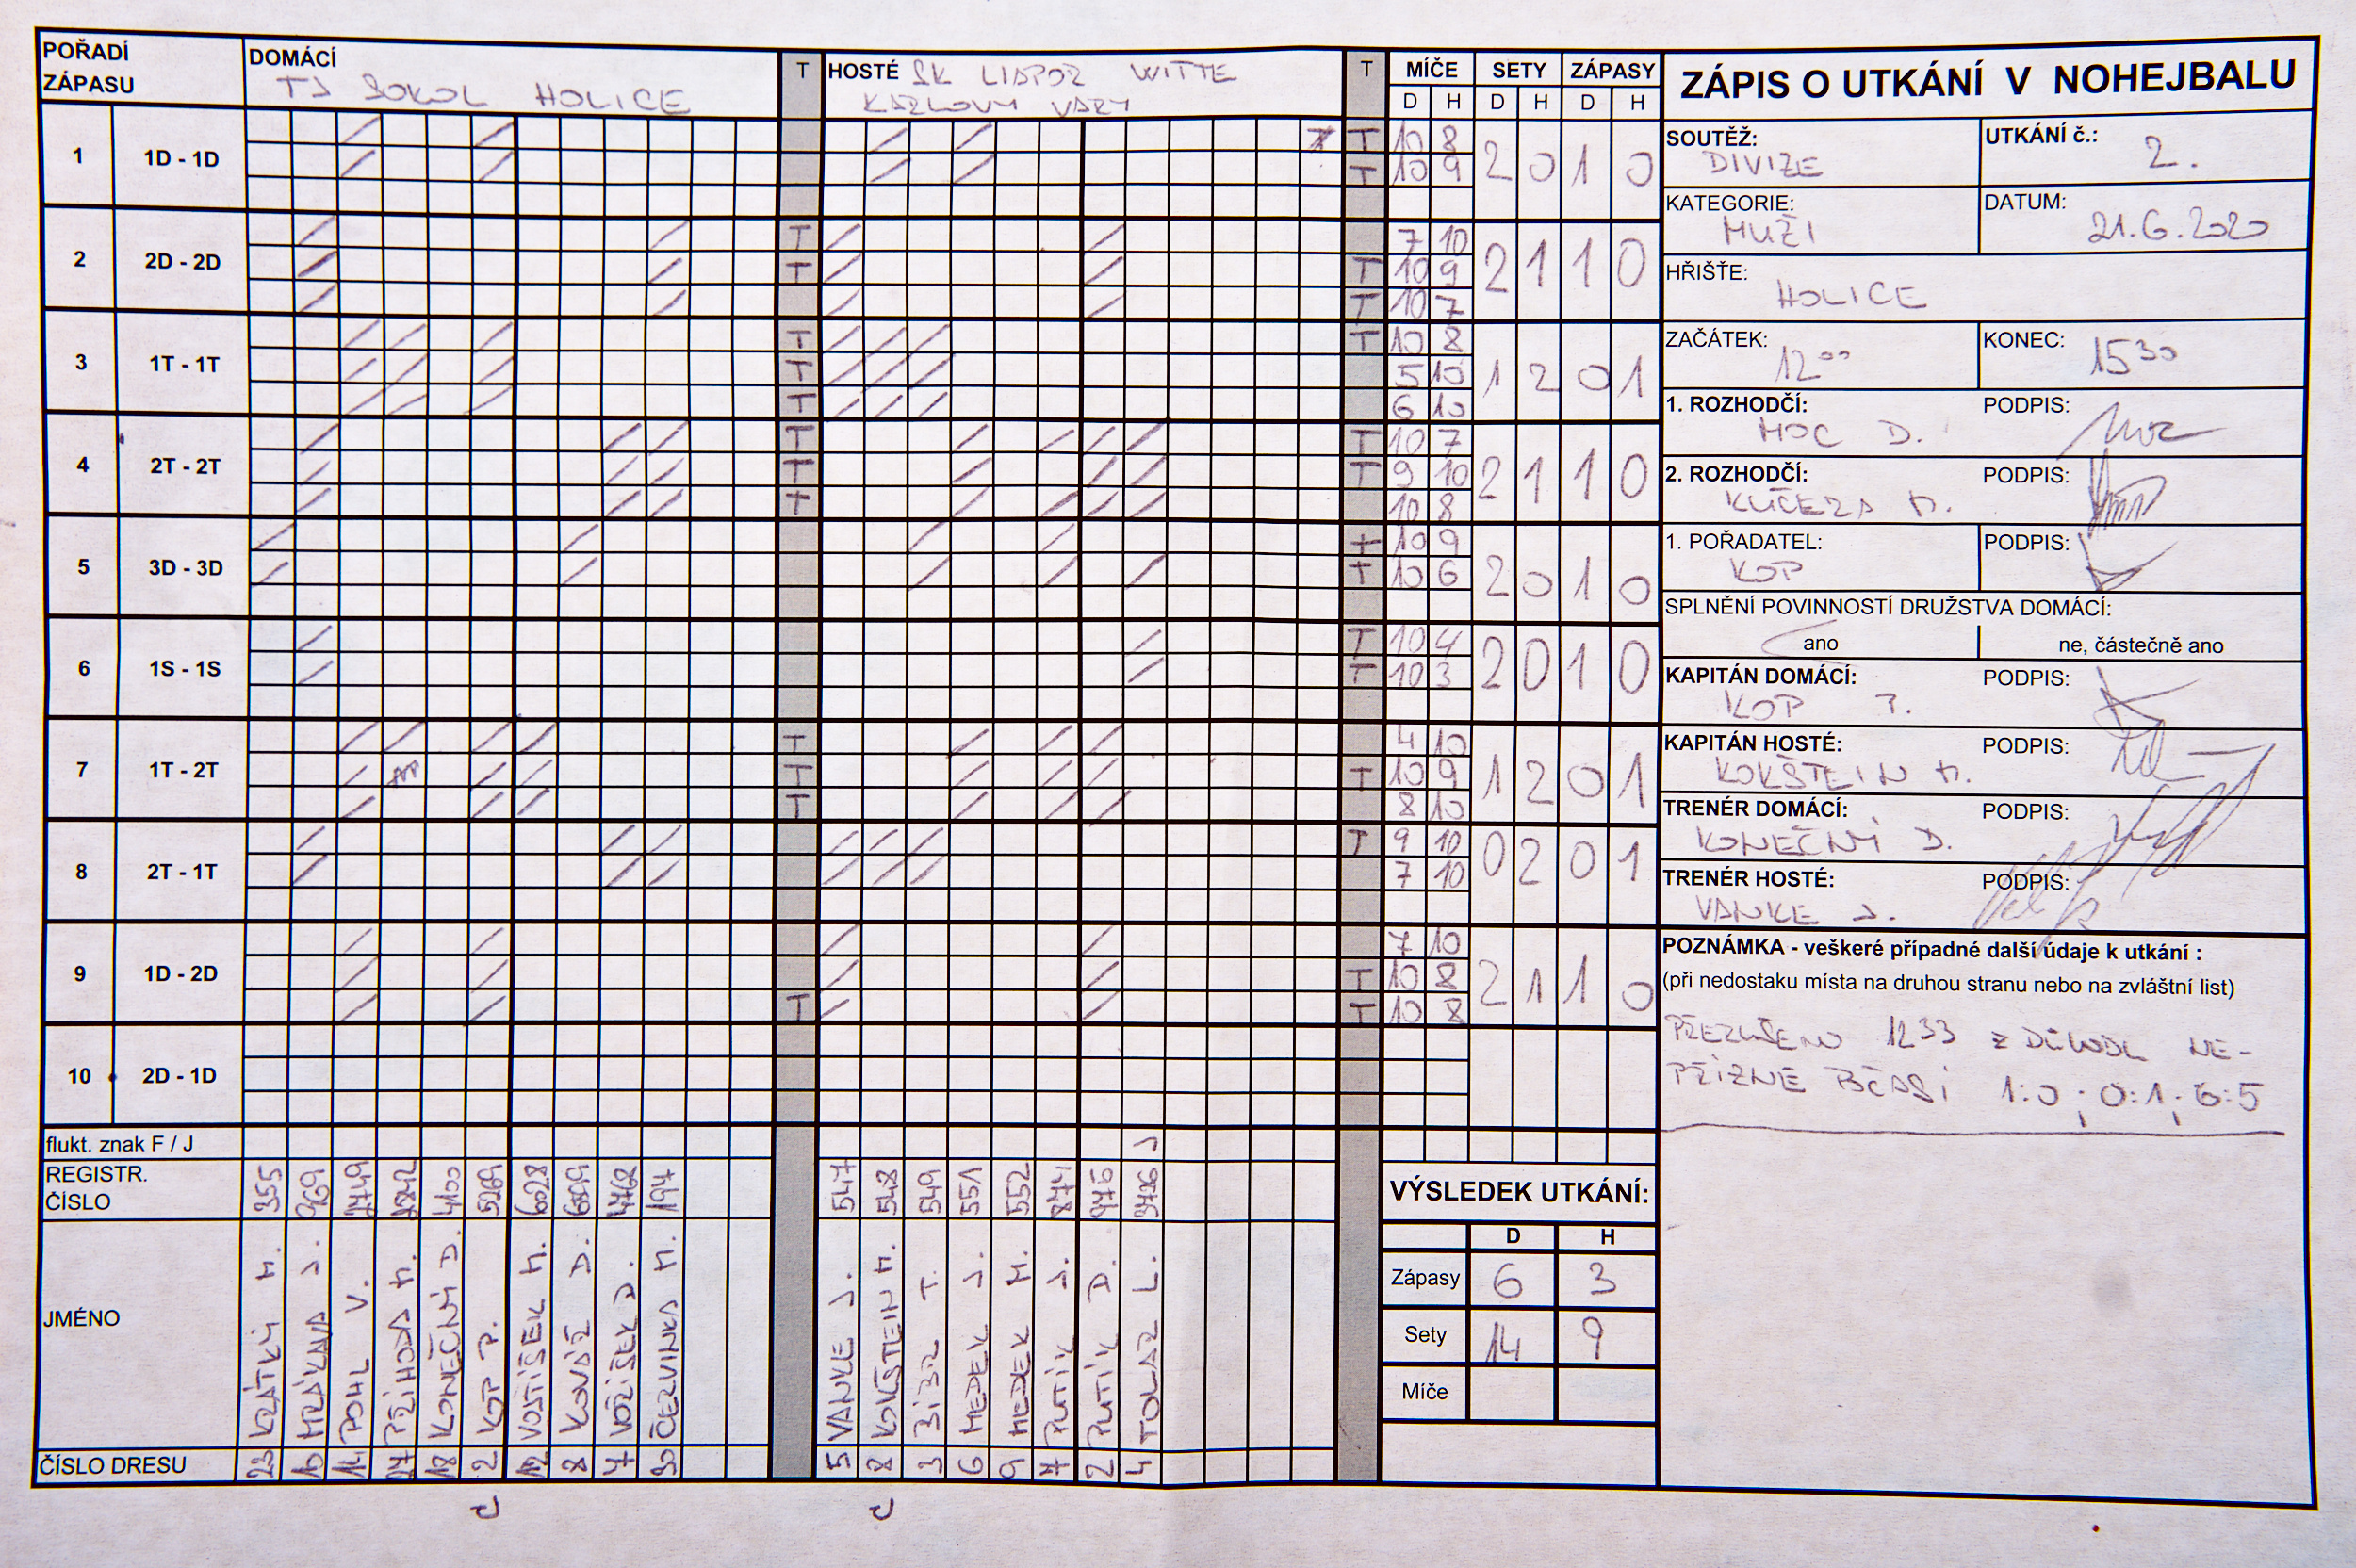 POŘADÍ ZÁPASU
DOMÁCÍ TJ SOKOL HOLICE
T
HOSTÉ SK LIAPOR WITTE
KARLOVY VARY
T
MÍČE SETY ZÁPASY
D H D H D H
1 1D - 1D T 10 8 2 0 1 0
T 10 9
2 2D - 2D T 7 10 2 1 1 0
T T 10 9
T 10 7
3 1T - 1T T T 10 8 1 2 0 1
T 5 10
T 6 10
4 2T - 2T T T 10 7 2 1 1 0
T T 9 10
T 10 8
5 3D - 3D T 10 9 2 0 1 0
T 10 6
6 1S - 1S T 10 4 2 0 1 0
T 10 3
7 1T - 2T T 4 10 1 2 0 1
T T 10 9
T 8 10
8 2T - 1T T 9 10 0 2 0 1
7 10
9 1D - 2D 7 10 2 1 1 0
T 10 8
T T 10 8
10 2D - 1D
flukt. znak F / J J
REGISTR. ČÍSLO
355 4100 5269 6028 4768 194
547 548 549 551 552 8471
JMÉNO
KRÁTKÝ M. HRÁKAVA J. POHL V. PŘÍHODA M. KONEČNÝ D. KOP P. VOSTŘÍŠEK M. KOVÁŘ D. VOŘÍŠEK D. ČERVINKA M.
VANKE J. KOKŠTEIN M. BÍBR T. MEDEK J. MEDEK M. PUTÍK J. PUTÍK D. TOLAR L.
ČÍSLO DRESU
23 10 14 27 18 2 12 8 7 30
5 8 3 6 9 7 2 4
C C
VÝSLEDEK UTKÁNÍ:
D H
Zápasy 6 3
Sety 14 9
Míče
ZÁPIS O UTKÁNÍ V NOHEJBALU
SOUTĚŽ: DIVIZE
UTKÁNÍ č.: 2.
KATEGORIE: MUŽI
DATUM: 21.6.2020
HŘIŠTE: HOLICE
ZAČÁTEK: 12 00
KONEC: 15 30
1. ROZHODČÍ: MOC D.
PODPIS:
2. ROZHODČÍ: KUČERA M.
PODPIS:
1. POŘADATEL: KOP
PODPIS:
SPLNĚNÍ POVINNOSTÍ DRUŽSTVA DOMÁCÍ:
ano ne, částečně ano
KAPITÁN DOMÁCÍ: KOP P.
PODPIS:
KAPITÁN HOSTÉ: KOKŠTEIN M.
PODPIS:
TRENÉR DOMÁCÍ: KONEČNÝ D.
PODPIS:
TRENÉR HOSTÉ: VANKE J.
PODPIS:
POZNÁMKA - veškeré případné další údaje k utkání :
(při nedostaku místa na druhou stranu nebo na zvláštní list)
PŘERUŠENO 12 33 Z DŮVODU NE-
PŘÍZNĚ POČASÍ 1:0; 0:1; 6:5